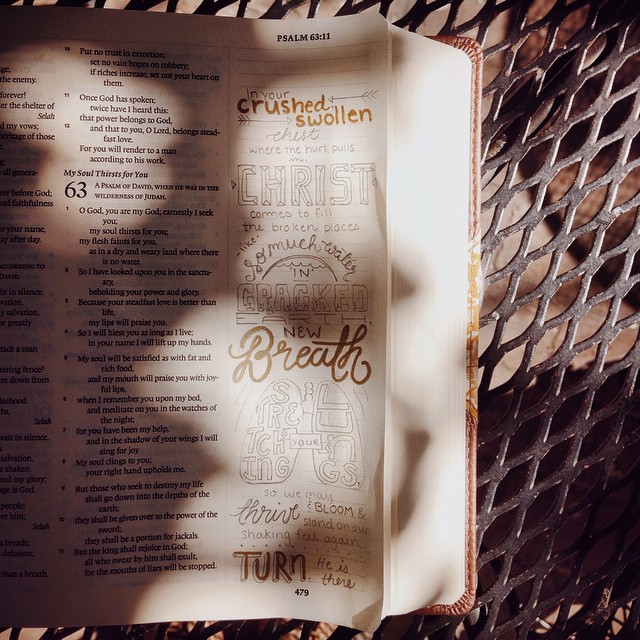 PSALM 63:11
ge,
the enemy.
forever!
er the shelter of
Selah
d my vows;
heritage of those
all genera-
ver before God;
nd faithfulness
o your name,
ay after day.
ACCORDING TO
DAVID.
its in silence;
vation,
y salvation,
be greatly
tack a man
tering fence?
him down from
lsehood.
hs,
Selah
wait in silence,
salvation,
e shaken.
nd my glory;
ge is God.
people;
ore him;
Selah
a breath;
delusion;
than a breath.
10 Put no trust in extortion;
set no vain hopes on robbery;
if riches increase, set not your heart on
them.
11 Once God has spoken;
twice have I heard this:
that power belongs to God,
12 and that to you, O Lord, belongs stead-
fast love.
For you will render to a man
according to his work.
My Soul Thirsts for You
63 A PSALM OF DAVID, WHEN HE WAS IN THE
WILDERNESS OF JUDAH.
1 O God, you are my God; earnestly I seek
you;
my soul thirsts for you;
my flesh faints for you,
as in a dry and weary land where there
is no water.
2 So I have looked upon you in the sanctu-
ary,
beholding your power and glory.
3 Because your steadfast love is better than
life,
my lips will praise you.
4 So I will bless you as long as I live;
in your name I will lift up my hands.
5 My soul will be satisfied as with fat and
rich food,
and my mouth will praise you with joy-
ful lips,
6 when I remember you upon my bed,
and meditate on you in the watches of
the night;
7 for you have been my help,
and in the shadow of your wings I will
sing for joy.
8 My soul clings to you;
your right hand upholds me.
9 But those who seek to destroy my life
shall go down into the depths of the
earth;
10 they shall be given over to the power of the
sword;
they shall be a portion for jackals.
11 But the king shall rejoice in God;
all who swear by him shall exult,
for the mouths of liars will be stopped.
in your
crushed
swollen
chest
where the hurt pulls
CHRIST
comes to fill
the broken places
like
so much water
IN
CRACKED
EARTH
NEW
Breath
STRETCHING
YOUR
LUNGS,
so we may
thrive & BLOOM &
stand on our
shaking feet again.
TURN. He is
there
479